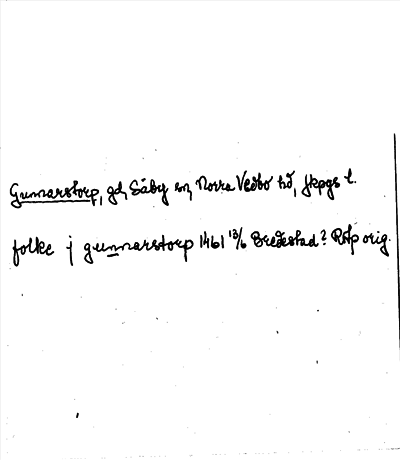 Gunnarstorp, gd, Säby sn, Norra Vedbo hd, Jkpgs l.
folke j gunnarstorp 1461 13/6 Bredestad? RAp orig.